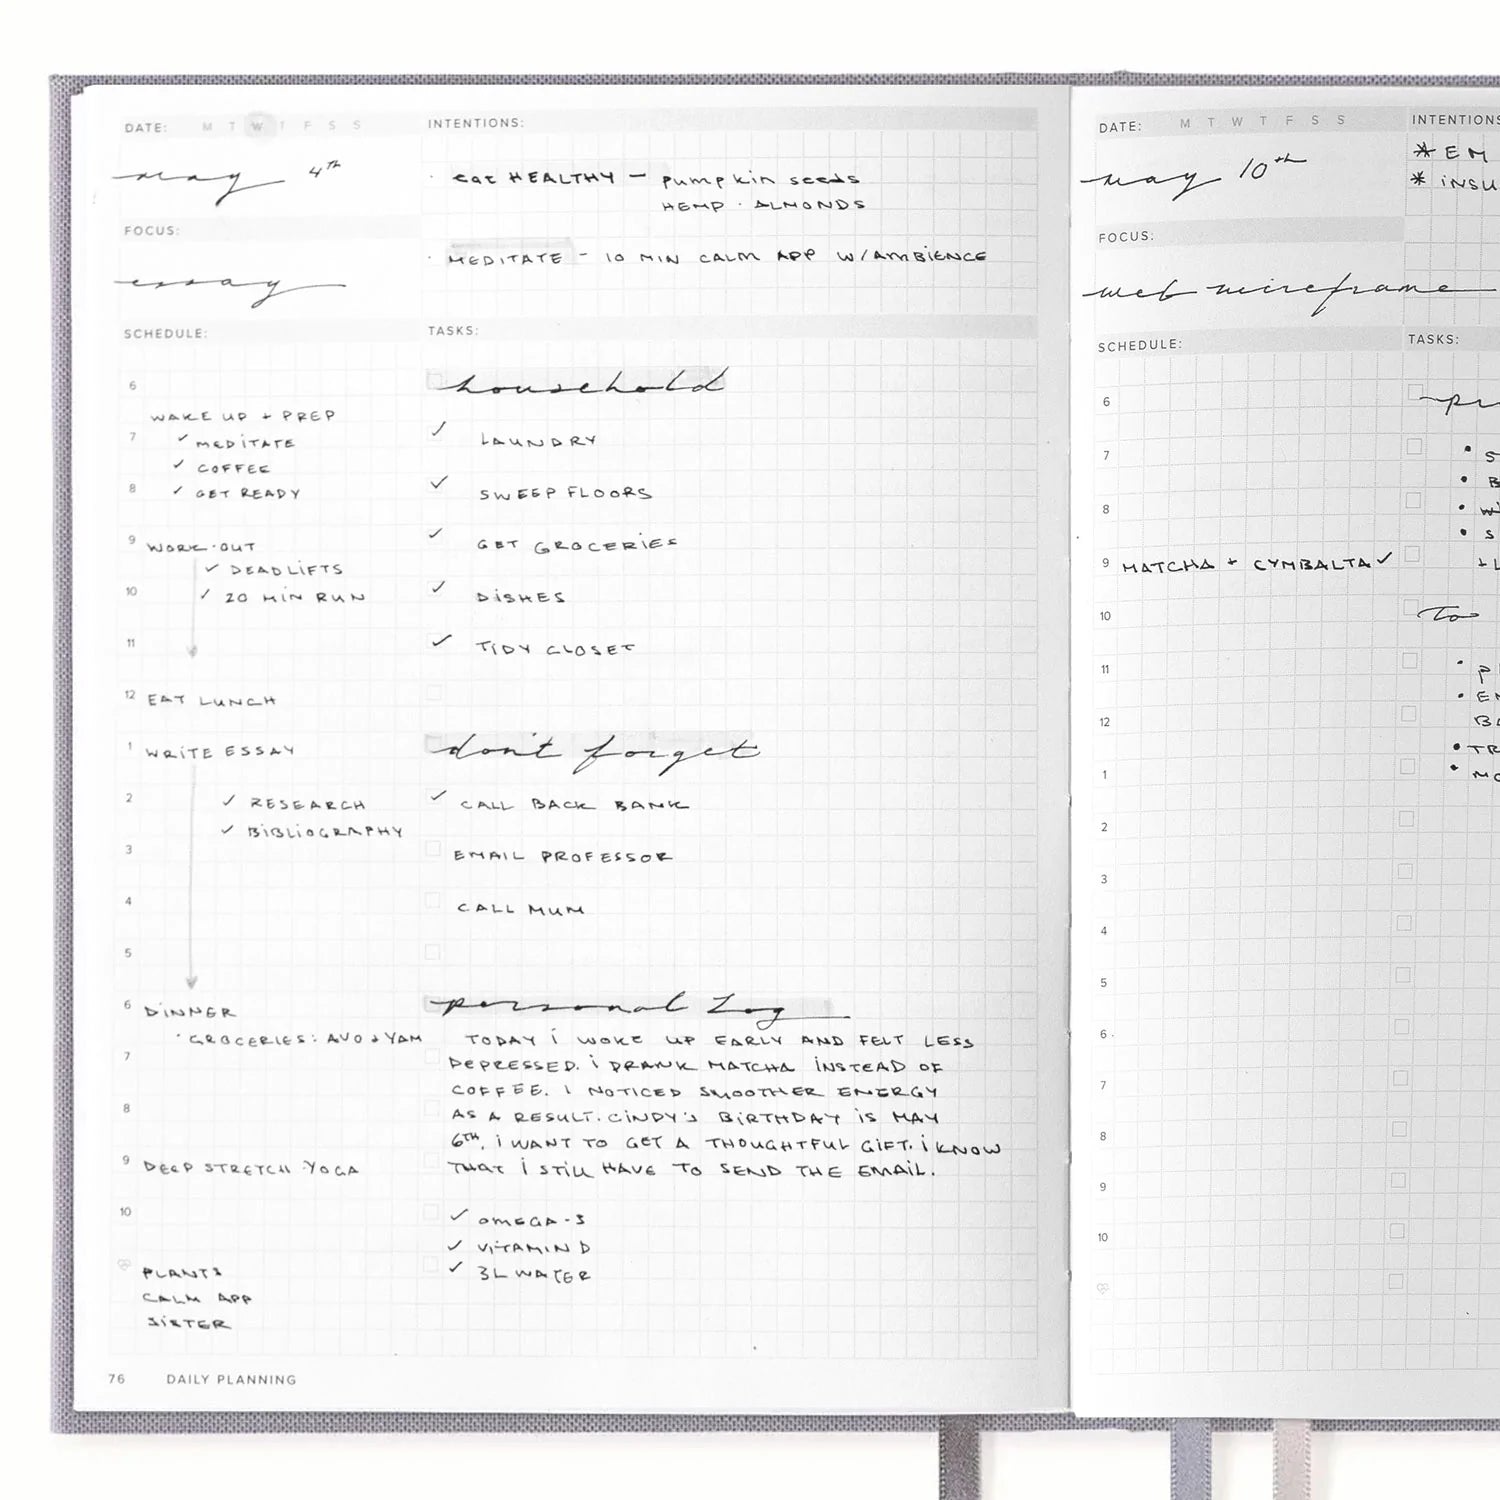 DATE: M T W T F S S
may 4th
FOCUS:
essay
SCHEDULE:
6
WAKE UP + PREP
7
✓ MEDITATE
✓ COFFEE
8
✓ GET READY
9 WORK·OUT
✓ DEADLIFTS
10
✓ 20 MIN RUN
11
12 EAT LUNCH
1 WRITE ESSAY
2
✓ RESEARCH
✓ BIBLIOGRAPHY
3
4
5
6 DINNER
· GROCERIES: AVO + YAM
7
8
9 DEEP STRETCH YOGA
10
PLANTS
CALM APP
SISTER
76 DAILY PLANNING
INTENTIONS:
· eat HEALTHY – pumpkin seeds
HEMP · ALMONDS
· MEDITATE – 10 MIN CALM APP W/AMBIENCE
TASKS:
household
✓ LAUNDRY
✓ SWEEP FLOORS
✓ GET GROCERIES
✓ DISHES
✓ TIDY CLOSET
don't forget
✓ CALL BACK BANK
EMAIL PROFESSOR
CALL MUM
personal log
TODAY i WOKE UP EARLY AND FELT LESS
DEPRESSED. i DRANK MATCHA INSTEAD OF
COFFEE. I NOTICED SMOOTHER ENERGY
AS A RESULT. CINDY'S BIRTHDAY IS MAY
6TH. i WANT TO GET A THOUGHTFUL GIFT. i KNOW
THAT i STILL HAVE TO SEND THE EMAIL.
✓ OMEGA-3
✓ VITAMIN D
✓ 3L WATER
DATE: M T W T F S S
may 10th
FOCUS:
web wireframe
SCHEDULE:
6
7
8
9 MATCHA + CYMBALTA ✓
10
11
12
1
2
3
4
5
6
7
8
9
10
INTENTIONS
* EM
* INSU
TASKS:
To